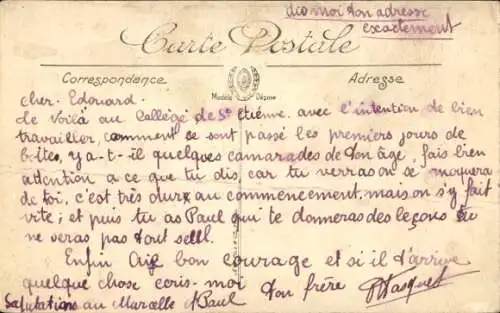 dis moi ton adresse
exactement
Carte Postale
Correspondance
Adresse
Modèle Déposé
cher Edouard.
te voilà au Collège de St Etienne avec l'intention de bien
travailler, comment se sont passé les premiers jours de
boîtes, y a-t-il quelques camarades de ton âge, fais bien
attention a ce que tu dis, car tu verras on se moquera
de toi, c'est très dur au commencement, mais on s'y fait
vite; et puis tu as Paul qui te donneras des leçons tu
ne veras pas tout seul.
Enfin bon courage et si il t'arrive
quelque chose ecris-moi Ton frère
Salutations au Marcelle et Paul